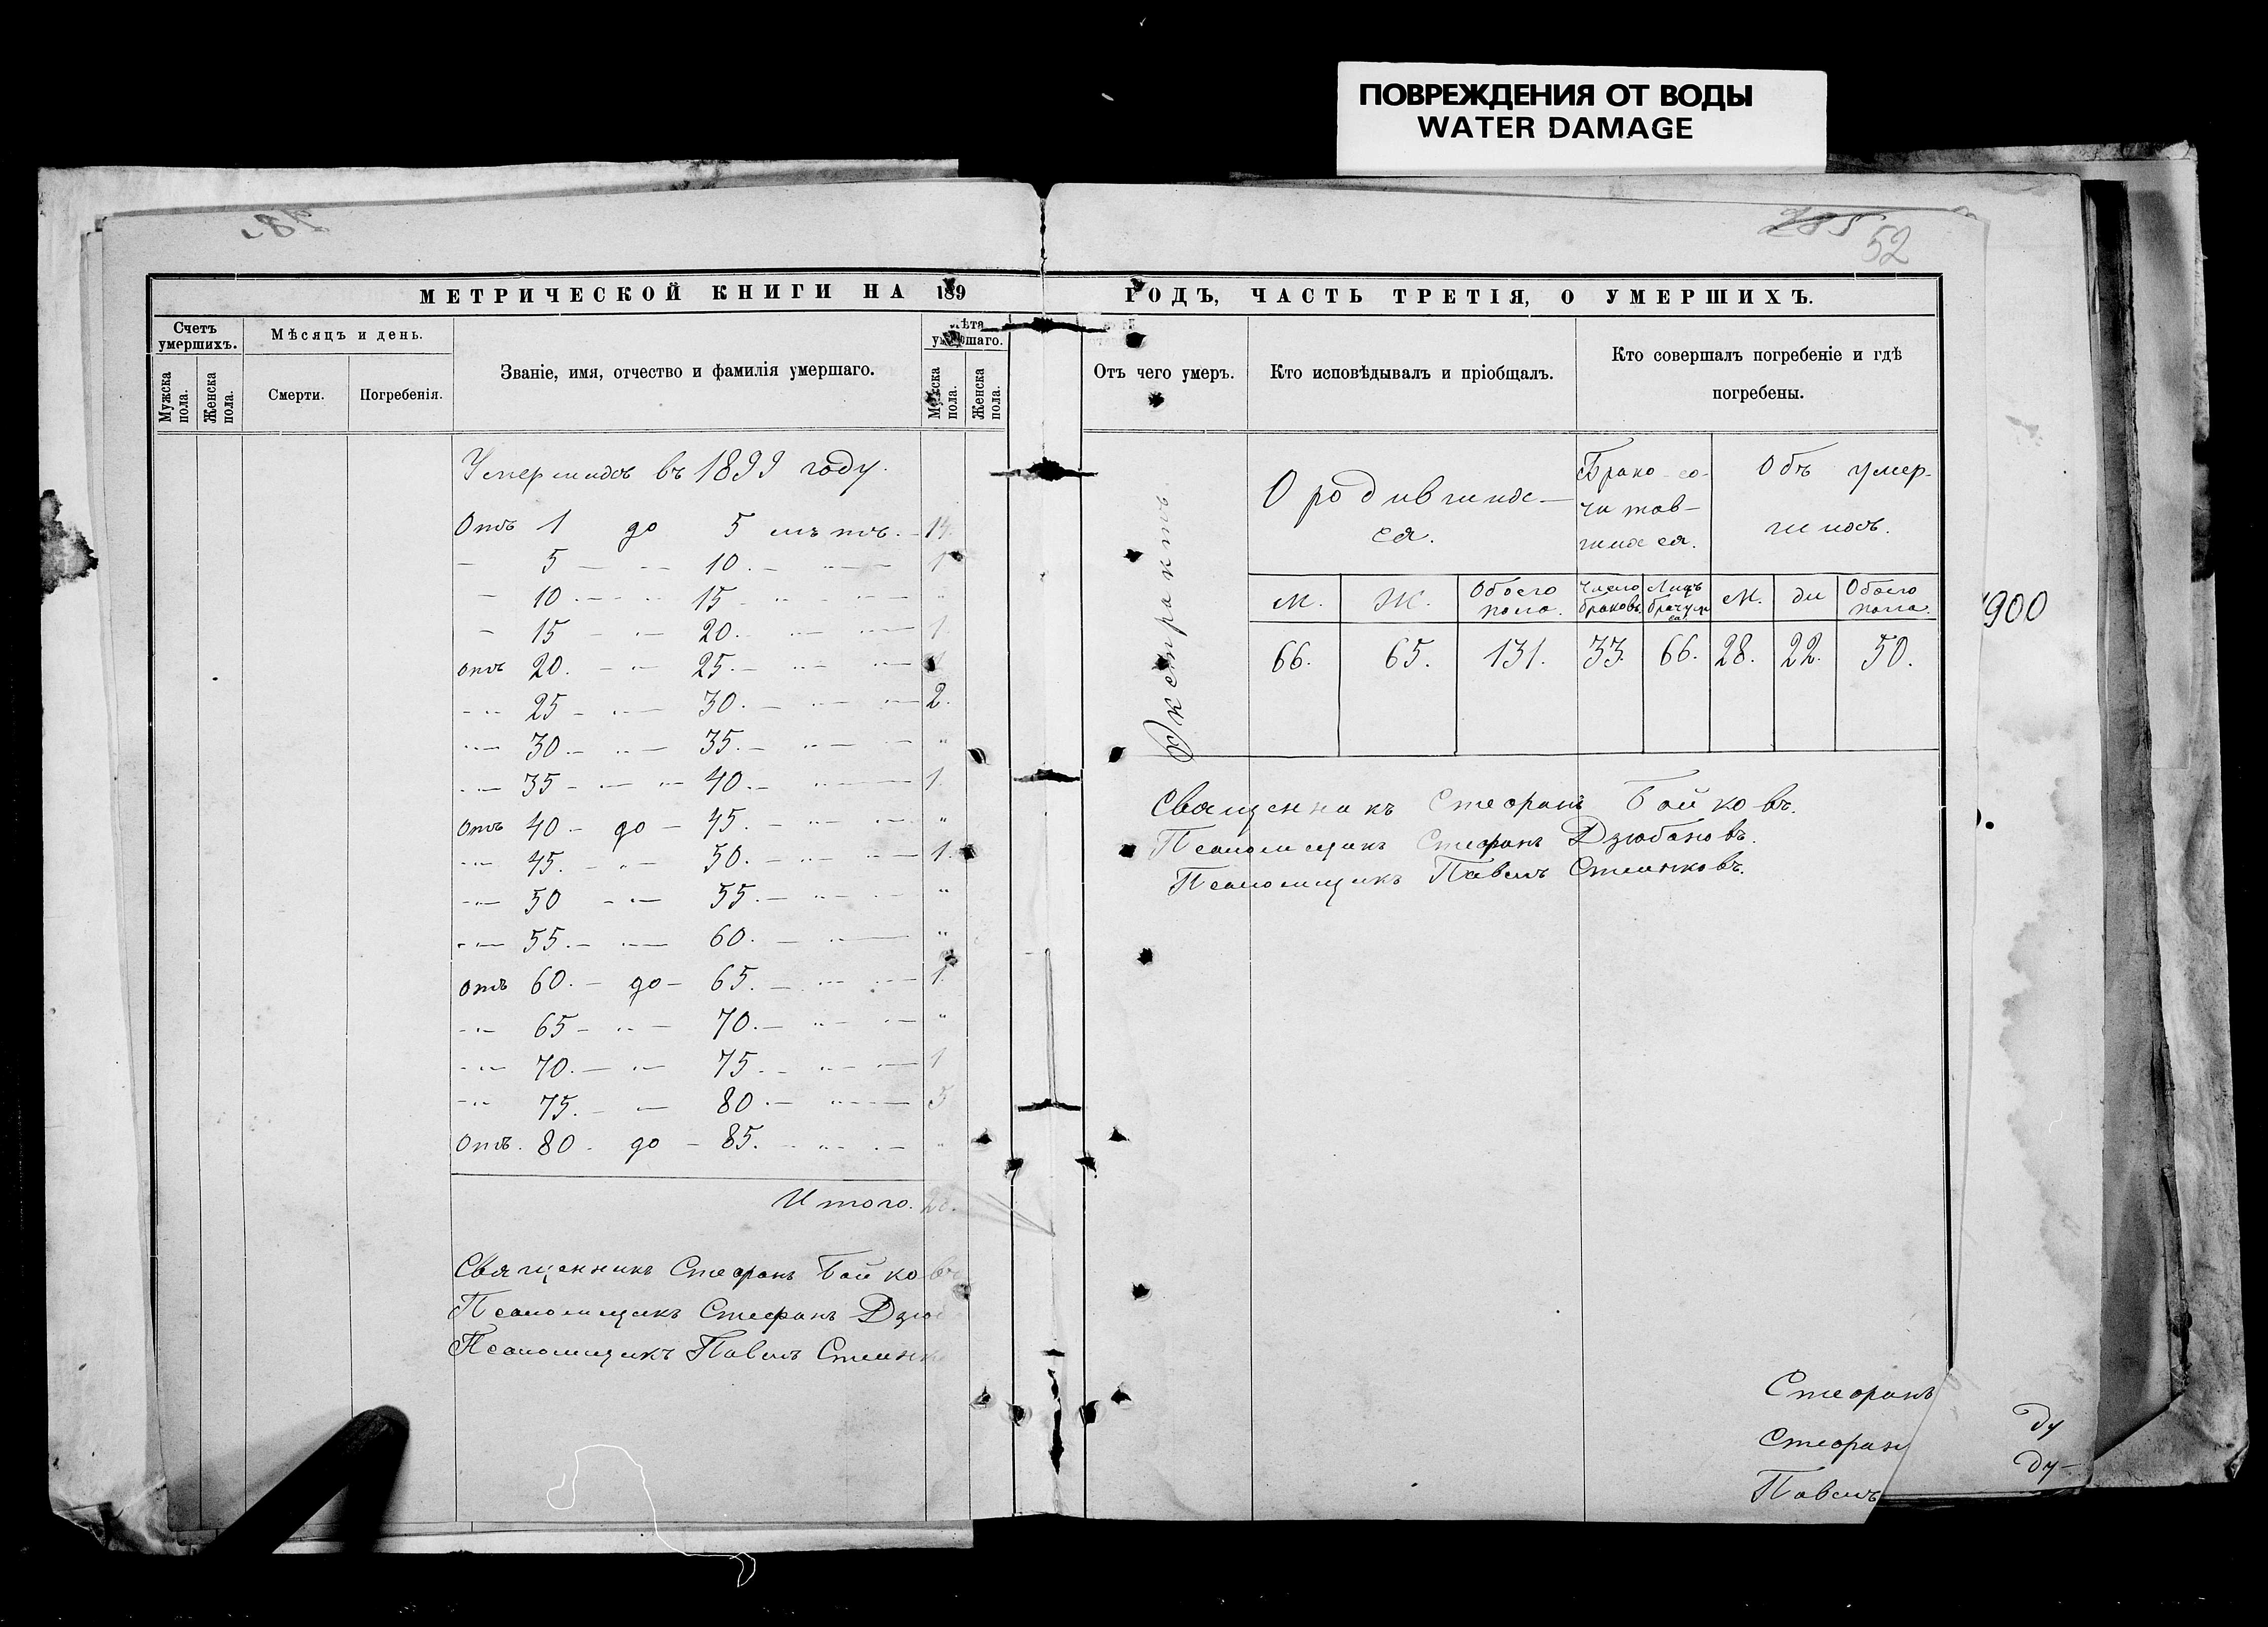 ПОВРЕЖДЕНИЯ ОТ ВОДЫ
WATER DAMAGE
52
МЕТРИЧЕСКОЙ КНИГИ НА 189
Счетъ умершихъ.
Мужска пола.
Женска пола.
Мѣсяцъ и день.
Смерти.
Погребенія.
Званіе, имя, отчество и фамилія умершаго.
Мужска пола.
Женска пола.
Умершихъ въ 1899 году.
Отъ 1 до 5 лѣтъ. - 14.
— 5 — -- — 10. — -- — 1
— 10 — -- 15 — -- — "
— 15 — -- 20. — -- — 1.
Отъ 20. — -- 25. — -- —
-- 25 — -- — 30. — -- — 2.
-- 30. — -- — 35. — -- — "
-- 35 — -- — 40. — -- — 1.
Отъ 40 — до — 45. — -- — "
-- 45. — -- 50. — -- — 1.
-- 50 — -- 55. — -- — "
-- 55. — -- 60. — -- — "
Отъ 60. — до — 65. — -- — 1.
-- 65 — -- — 70. — -- — "
-- 70. — -- 75. — -- — 1
-- 75. — -- 80. — -- — 5
Отъ. 80. до — 85. — -- — "
Итого.
Священникъ Стефанъ Бойковъ
Псаломщикъ Стефанъ Дзю
Псаломщикъ Павелъ
ГОДЪ, ЧАСТЬ ТРЕТІЯ, О УМЕРШИХЪ.
Отъ чего умеръ.
Кто исповѣдывалъ и пріобщалъ.
Кто совершалъ погребеніе и гдѣ погребены.
Экстрактъ
О родивших-
ся.
Брако-со-
читав-
шихся.
Объ умер-
шихъ.
М. Ж. Обоего пола. Число браковъ. Лицъ М. Обоего пола.
66. 65. 131. 33. 66. 28. 22. 50.
Священникъ Стефанъ Бойковъ.
Псаломщикъ Стефанъ Дзюбановъ.
Псаломщикъ Павелъ
900
Стефанъ
Стефан
Павелъ
ду
ду-